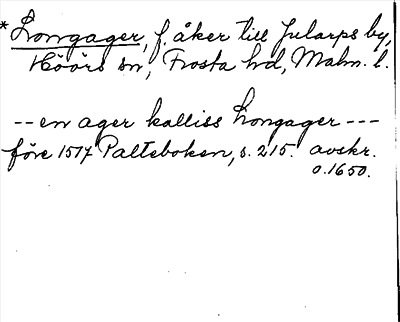 *Longager, f. åker till Jularps by,
Höörs sn, Frosta hd, Malm. l.
-- en ager kalliss Longager ---
före 1517 Palteboken, s. 215. avskr.
o. 1650.